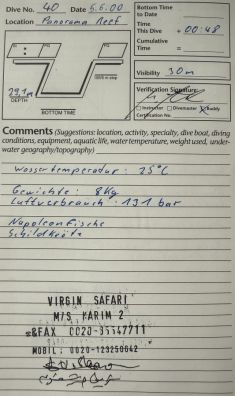 Dive No. 40 Date 5.6.00
Location Panorama Reef
Bottom Time to Date
Time This Dive + 00:48
Cumulative Time =
Visibility 30m
29,1m
DEPTH
BOTTOM TIME
Verification Signature
Instructor Divemaster Buddy
Certification No.
Comments (Suggestions: location, activity, specialty, dive boat, diving
conditions, equipment, aquatic life, water temperature, weight used, under-
water geography/topography)
Wassertemperatur: 25°C
Gewichte: 8Kg
Luftverbrauch: 131 bar
Napoleonfische
Schildkröte
VIRGIN SAFARI
M/S KARIM 2
&FAX 0020-
MOBIL: 0020-123250642